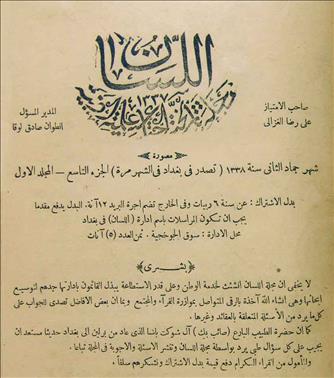 اللسان
صاحب الامتياز
على رضا الغزالى
المدير المسؤل
انطوان صادق لوقا
مصورة
شهر جماد الثانى سنة ١٣٣٨ ( تصدر فى بغداد فى الشهر مرة ) الجزء التاسع — المجلد الاول
بدل الاشتراك : عن سنة ٦ ربيات وفى الخارج تضم اجرة البريد ١٢ آنة. البدل يدفع مقدما
يجب ان تكون المراسلات باسم ادارة ( اللسان ) فى بغداد
محل الادارة : سوق الجوخجية . ثمن العدد (٥) آنات
( بشرى )
لا يخفى ان مجلة اللسان انشئت لخدمة الوطن وعلى قدر الاستطاعة يبذل القائمون بادارتها جهدهم لتوسيع
ابحاثها وهى انشاء الله آخذة بالرقى المتواصل بموازرة القرآء والمجتمع وبما ان بعض الافاضل تصدى للجواب على
كل ما يرد من الأسئلة المتعلقة بالعقائد وغيرها.
كما ان حضرة الطبيب البارع ( صائب بك ) آل شوكت باشا الذى عاد من برلين الى بغداد حديثا مستعد ان
يجيب على كل سؤال طبى يرد بواسطة مجلة اللسان وتنشر الاسئلة والاجوبة فى المجلة تباعا .
والمأمول من القراء الكرام دفع قيمة بدل الاشتراك ونشكرهم سلفاً .